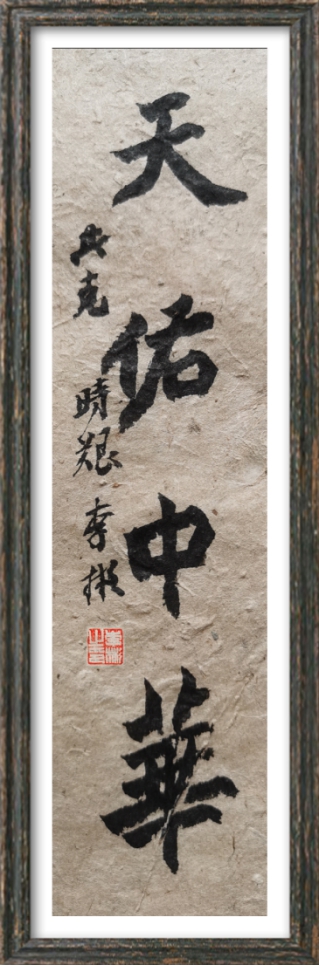 天佑中華
共克時艱 李